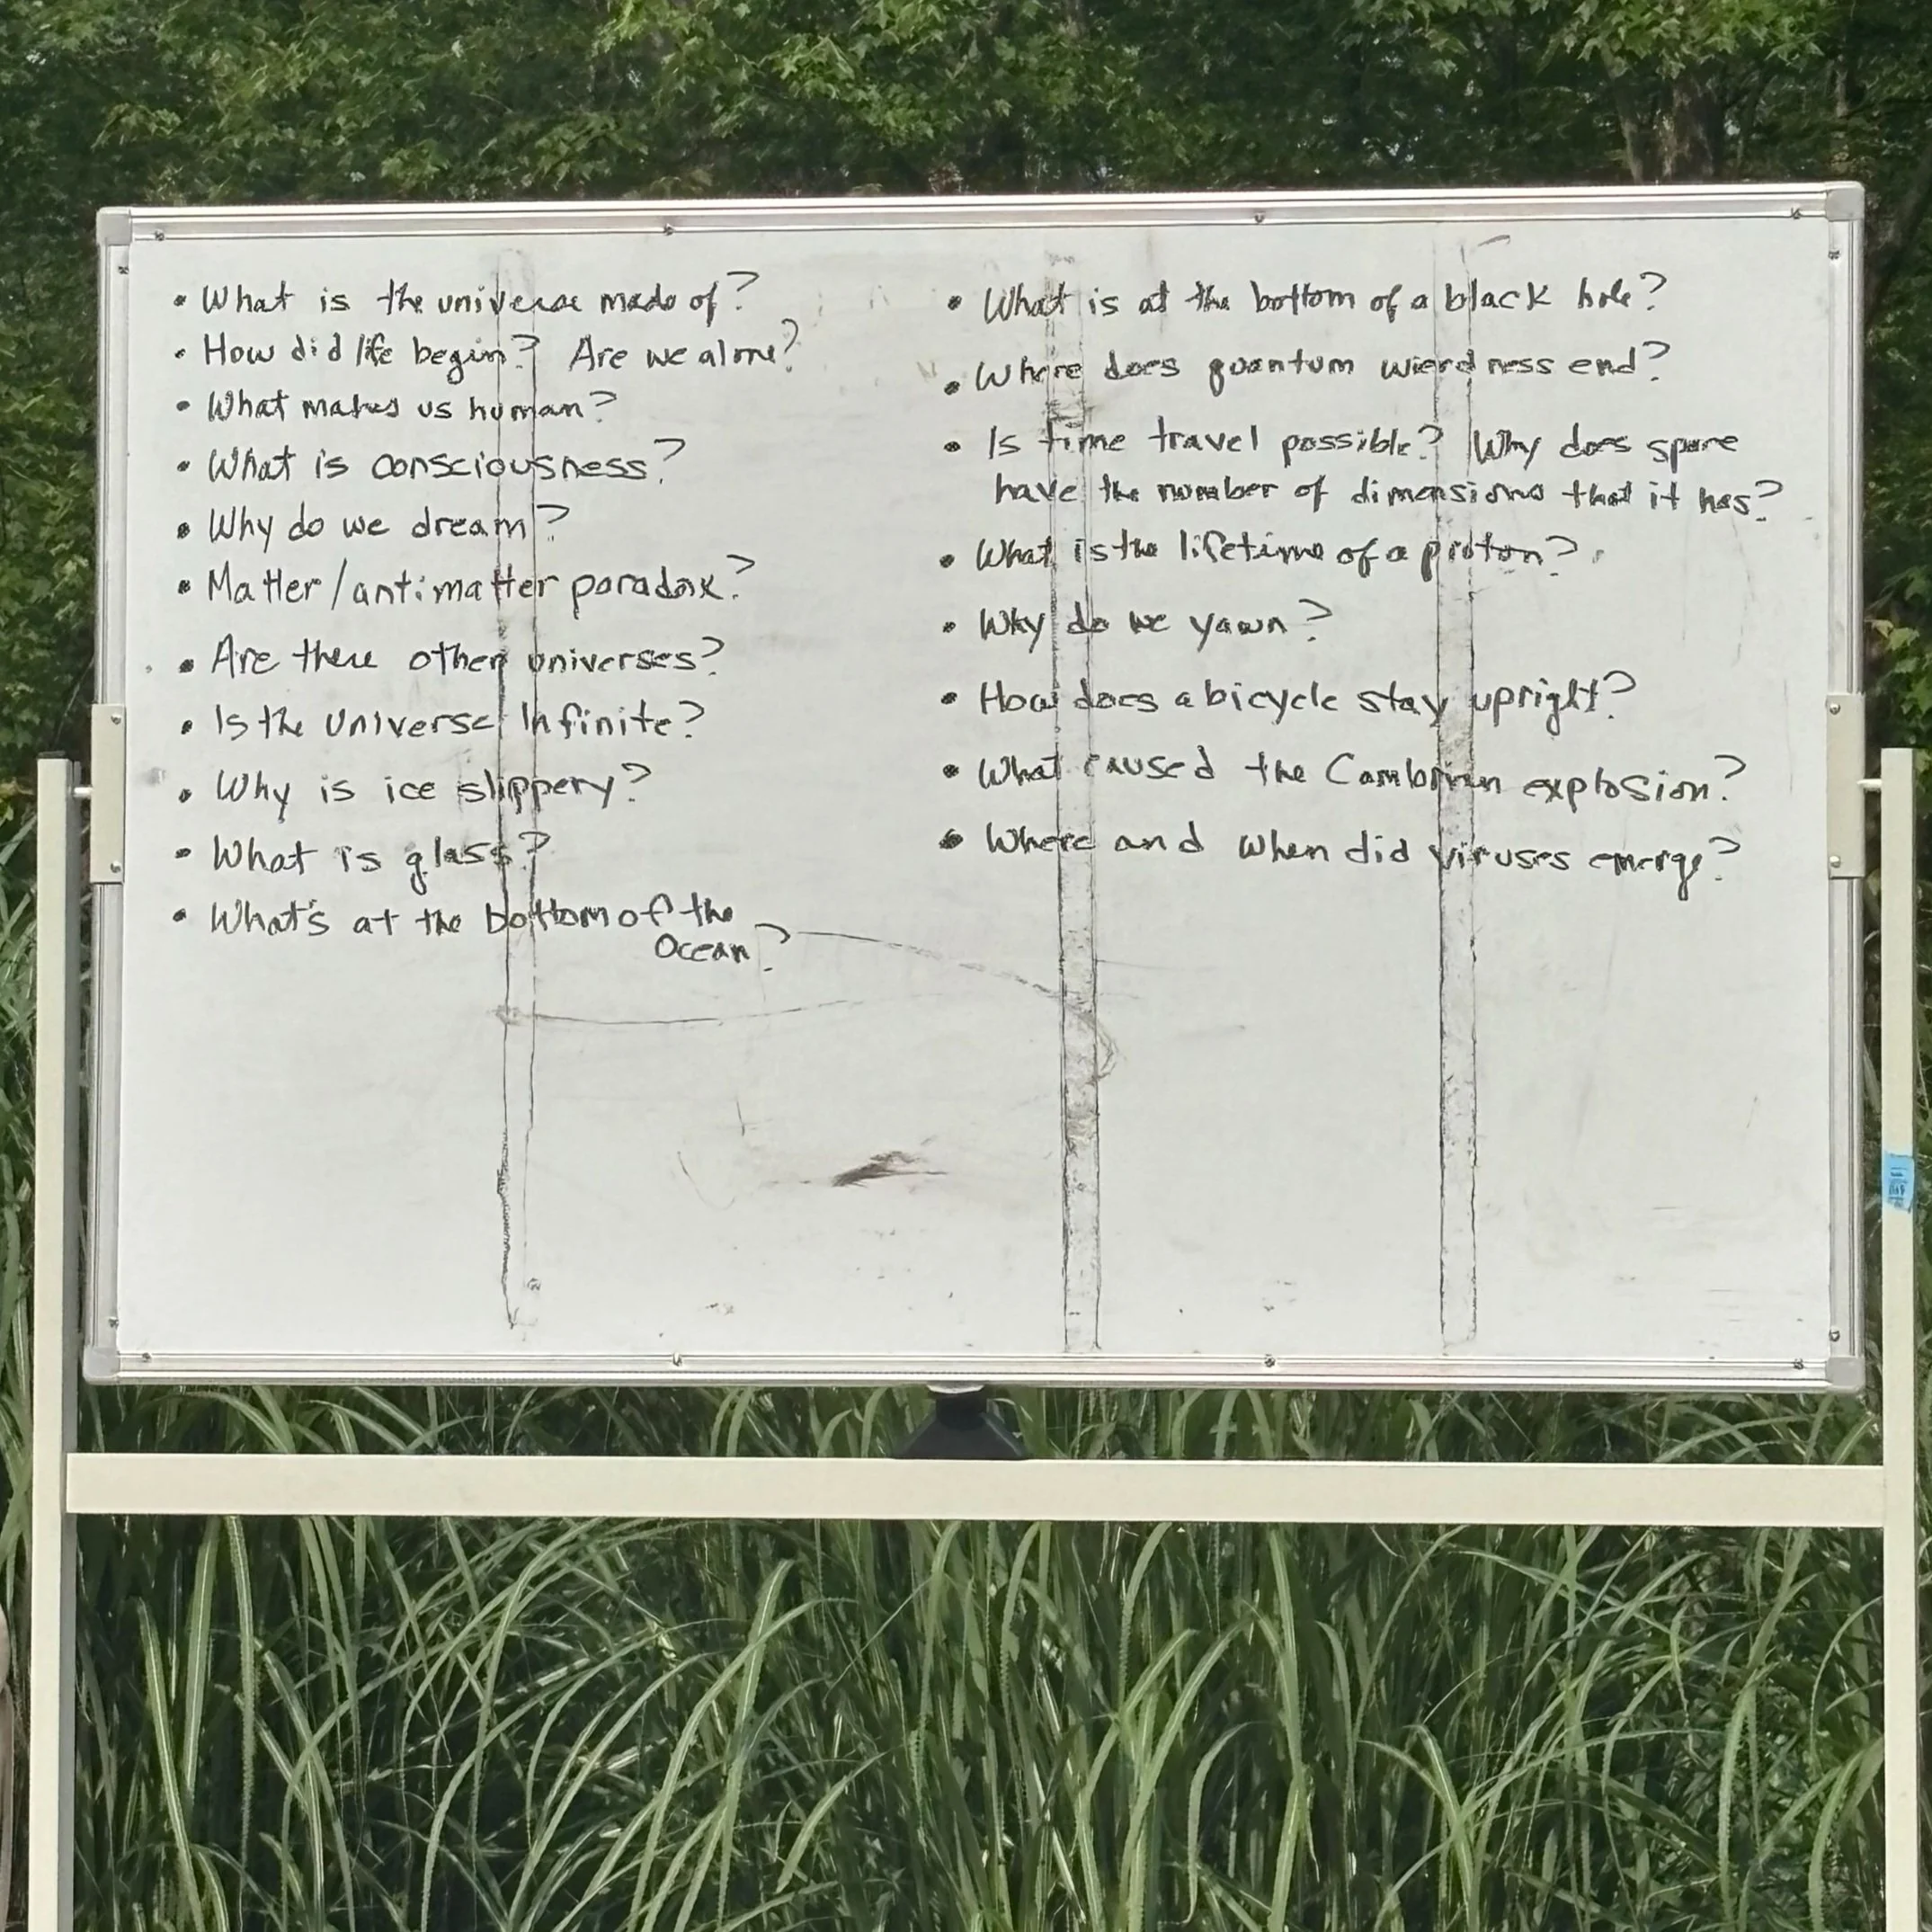 • What is the universe made of?
• How did life begin? Are we alone?
• What makes us human?
• What is consciousness?
• Why do we dream?
• Matter/antimatter paradox?
• Are there other universes?
• Is the Universe Infinite?
• Why is ice slippery?
• What is glass?
• What's at the bottom of the
Ocean?
• What is at the bottom of a black hole?
• Where does quantum wierdness end?
• Is time travel possible? Why does space
have the number of dimensions that it has?
• What is the lifetime of a proton?
• Why do we yawn?
• How does a bicycle stay upright?
• What caused the Cambrian explosion?
• Where and when did viruses emerge?